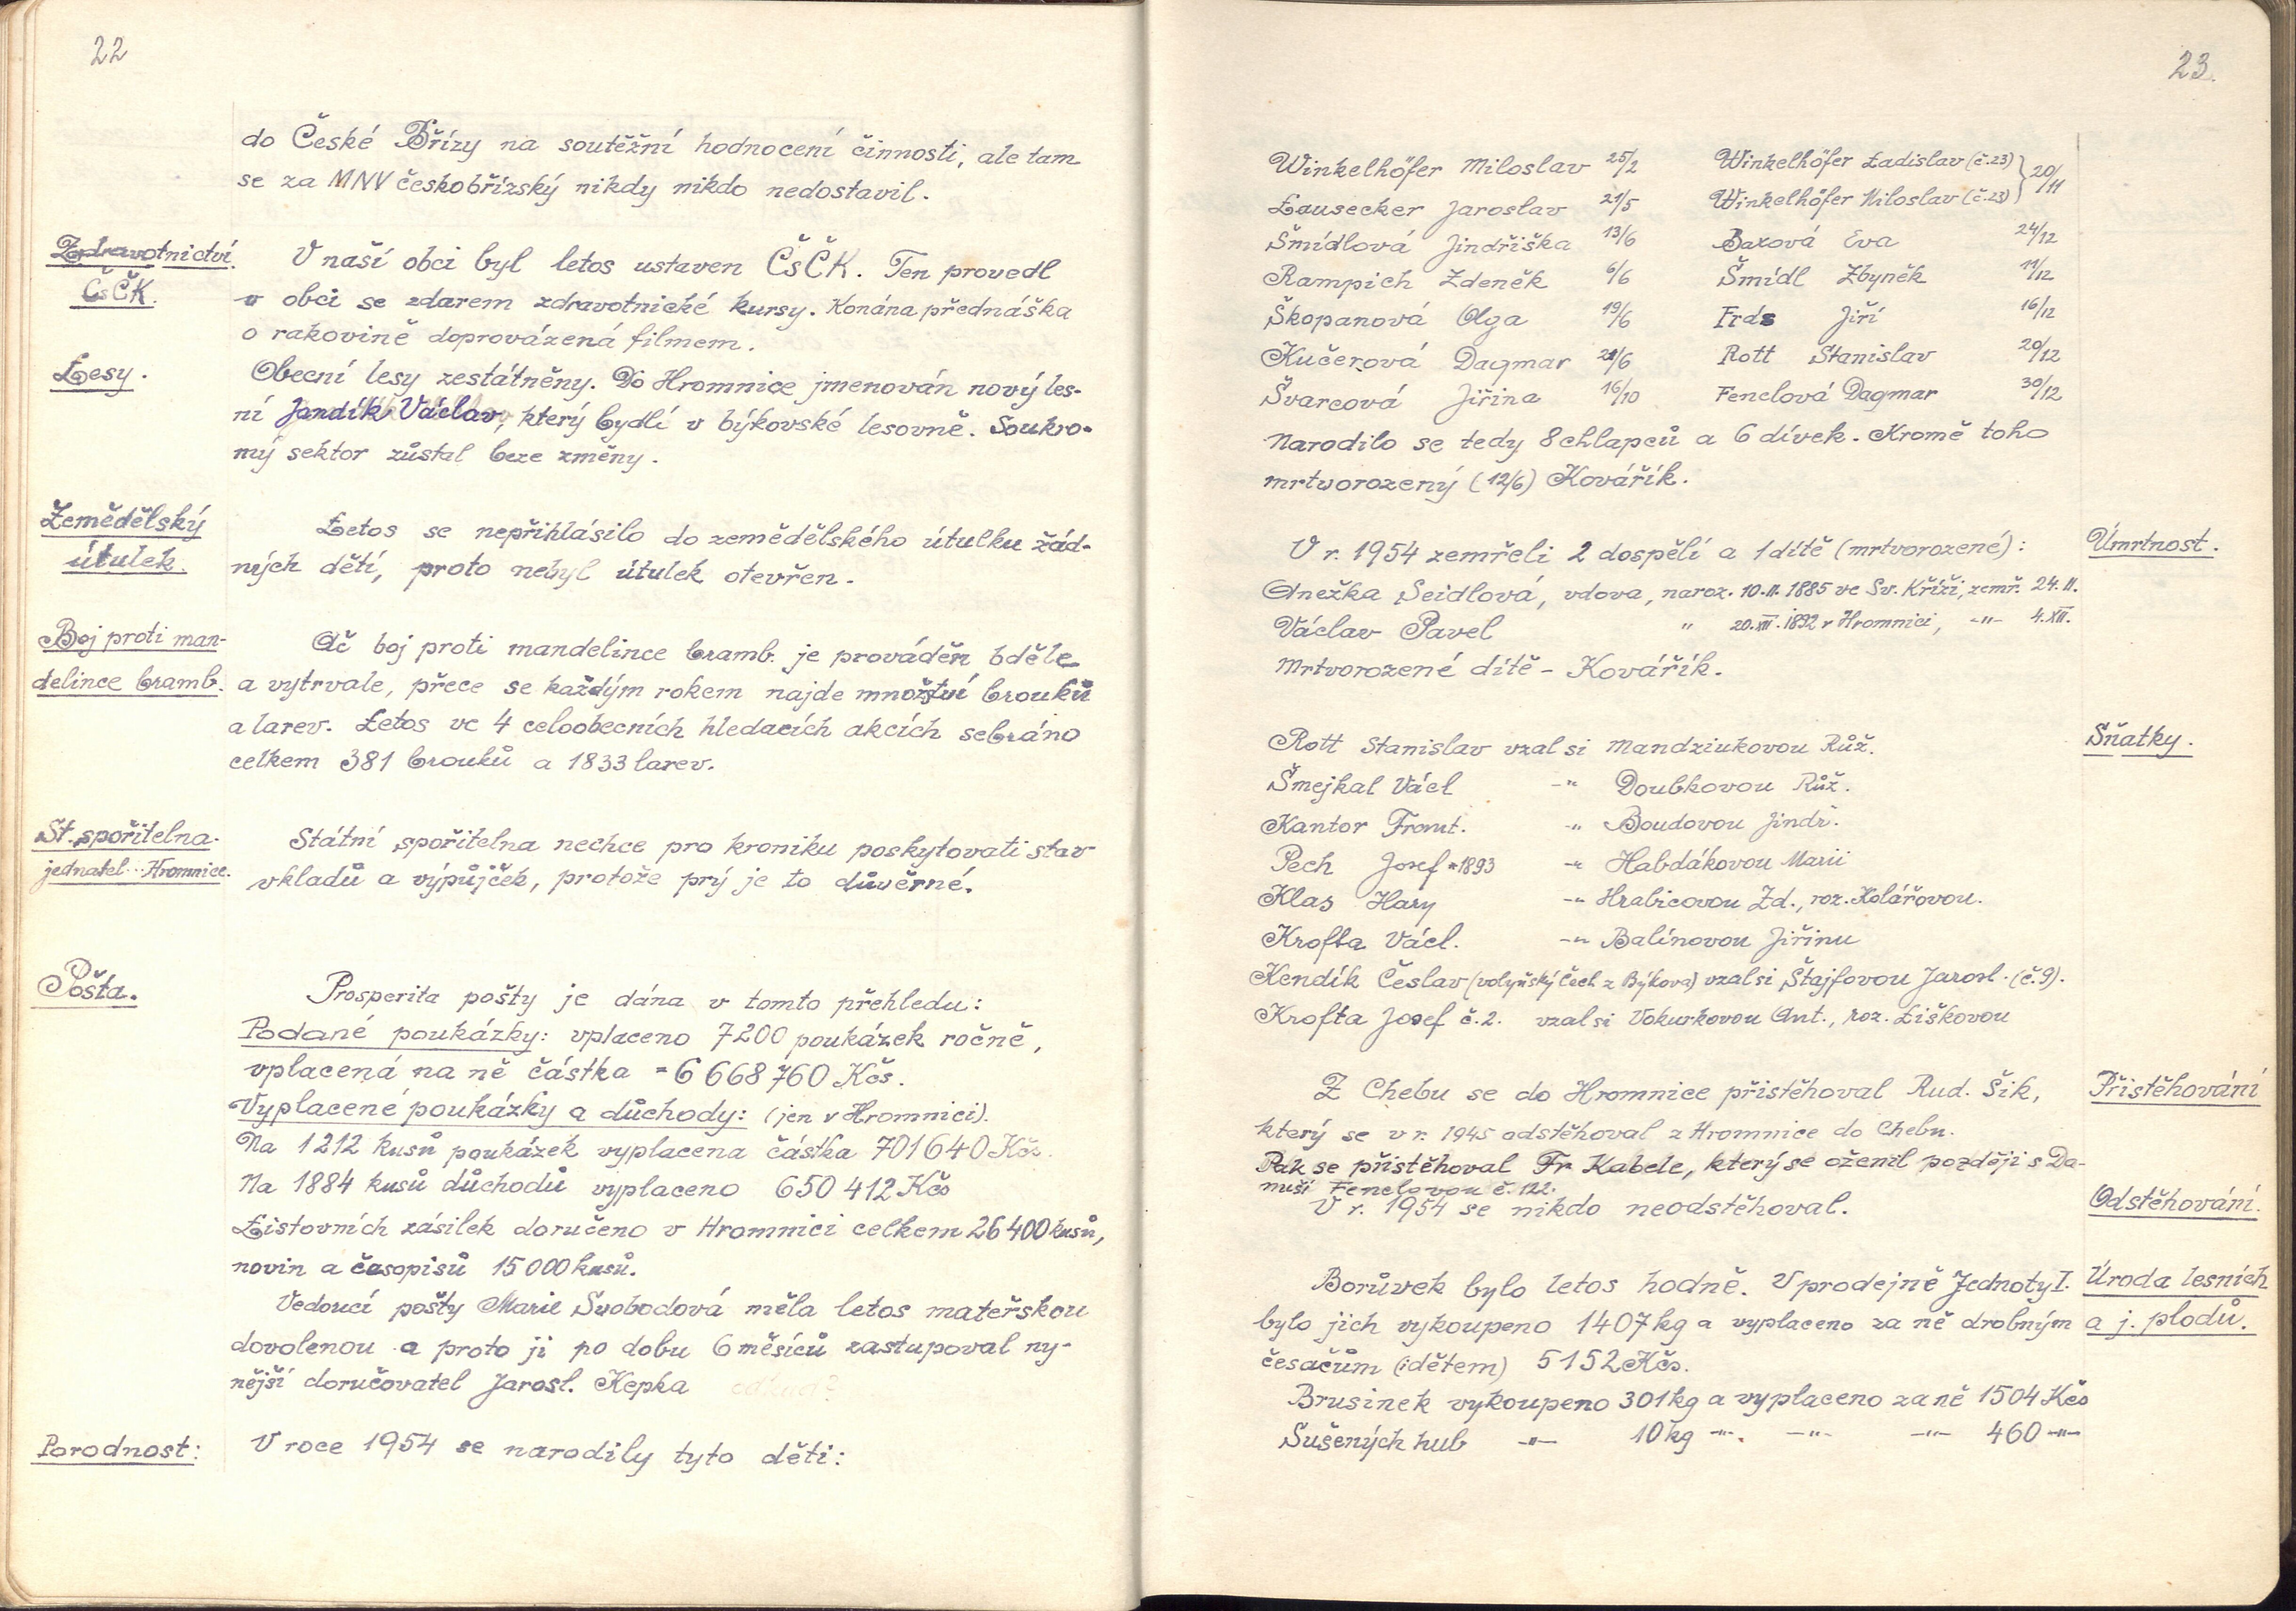 22
do České Břízy na soutěžní hodnocení činnosti, ale tam
se za MNV českobřízský nikdy nikdo nedostavil.
Zdravotnictví.
ČsČK.
V naší obci byl letos ustaven ČsČK. Ten provedl
v obci se zdarem zdravotnické kursy. Konána přednáška
o rakovině doprovázená filmem.
Lesy.
Obecní lesy zestátněny. Do Hromnice jmenován nový les-
ní Jandík Václav, který bydlí v býkovské lesovně. Soukro-
mý sektor zůstal beze změny.
Zemědělský
útulek.
Letos se nepřihlásilo do zemědělského útulku žád-
ných dětí, proto nebyl útulek otevřen.
Boj proti man-
delince bramb.
Ač boj proti mandelince bramb. je prováděn bděle
a vytrvale, přece se každým rokem najde množství brouků
a larev. Letos ve 4 celoobecních hledacích akcích sebráno
celkem 381 brouků a 1833 larev.
St. spořitelna.
jednatel... Hromnice.
Státní spořitelna nechce pro kroniku poskytovati stav
vkladů a výpůjček, protože prý je to důvěrné.
Pošta.
Prosperita pošty je dána v tomto přehledu:
Podané poukázky: vplaceno 7200 poukázek ročně,
vplacená na ně částka = 6 668 760 Kčs.
Vyplacené poukázky a důchody: (jen v Hromnici).
Na 1212 kusů poukázek vyplacena částka 701640 Kčs.
Na 1884 kusů důchodů vyplaceno 650 412 Kčs
Listovních zásilek doručeno v Hromnici celkem 26 400 kusů,
novin a časopisů 15 000 kusů.
Vedoucí pošty Marie Svobodová měla letos mateřskou
dovolenou a proto ji po dobu 6 měsíců zastupoval ny-
nější doručovatel Jarosl. Kepka
Porodnost:
V roce 1954 se narodily tyto děti:
23.
Winkelhöfer Miloslav 25/2 Winkelhöfer Ladislav (č.23) } 20/11
Lausecker Jaroslav 21/5 Winkelhöfer Miloslav (č.23)
Šmídlová Jindřiška 13/6 Baxová Eva 24/12
Rampich Zdeněk 6/6 Šmídl Zbyněk 11/12
Škopanová Olga 19/6 Frds Jiří 16/12
Kučerová Dagmar 21/6 Rott Stanislav 20/12
Švarcová Jiřina 16/10 Fenclová Dagmar 30/12
Narodilo se tedy 8 chlapců a 6 dívek. Kromě toho
mrtvorozený (12/6) Kovářík.
Úmrtnost.
V r. 1954 zemřeli 2 dospělí a 1 dítě (mrtvorozené):
Anežka Seidlová, vdova, naroz. 10.II. 1885 ve Sv. Kříži, zemř. 24.II.
Václav Pavel " 20.XII. 1892 v Hromnici, -"- 4.XII.
Mrtvorozené dítě - Kovářík.
Sňatky.
Rott Stanislav vzal si Mandziukovou Růž.
Šmejkal Václ -" Doubkovou Růž.
Kantor Frant. -" Boudovou Jindř.
Pech Josef *1893 -" Habdákovou Marii
Klas Hary -" Hrabicovou Zd., roz. Kolářovou.
Krofta Václ. -" Balínovou Jiřinu
Kendík Česlav (volyňský Čech z Býkova) vzal si Štajfovou Jarosl. (č.9).
Krofta Josef č. 2. vzal si Vokurkovou Ant., roz. Liškovou
Přistěhování
Z Chebu se do Hromnice přistěhoval Rud. Šik,
který se v r. 1945 odstěhoval z Hromnice do Chebu.
Pak se přistěhoval Fr. Kabele, který se oženil později s Da-
nuší Fenclovou č. 122.
Odstěhování.
V r. 1954 se nikdo neodstěhoval.
Úroda lesních
a j. plodů.
Borůvek bylo letos hodně. V prodejně Jednoty I.
bylo jich vykoupeno 1407 kg a vyplaceno za ně drobným
česačům (i dětem) 5152 Kčs.
Brusinek vykoupeno 301 kg a vyplaceno za ně 1504 Kčs
Sušených hub -"- 10 kg -"- -"- -"- 460 -"-